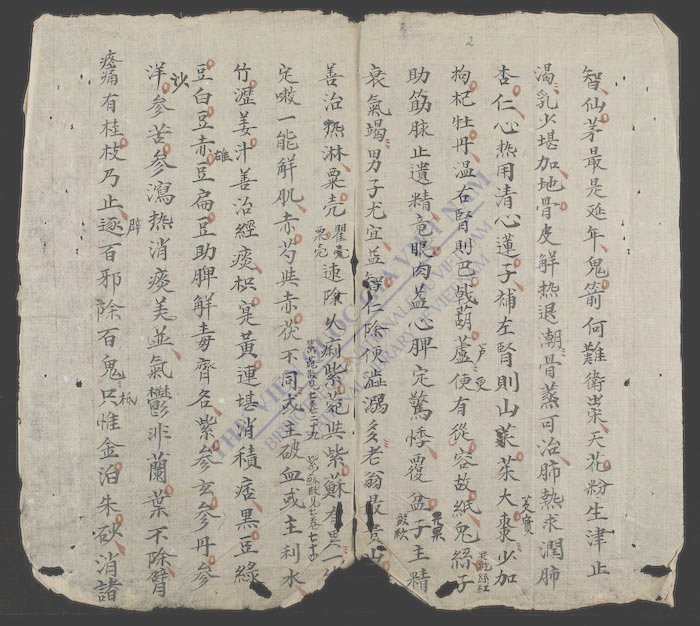 2
智仙茅最是延年鬼箭何難衛禦天花粉生津止
渴乳少堪加地骨皮解热退潮骨蒸可治肺熱求潤肺
杏仁心热用清心蓮子補左腎則山萸茱大棗少加
芡實
枸杞牡丹溫右腎則巴戟葫蘆便有從容故紙兔絲子
助筋脉止遺精竟眼肉益心脾定驚悸覆盆子主精
衰氣竭男子尤宜益智仁除便澁溺多老翁最
善治热淋粟壳速除久痢紫菀共紫蘇有
定嗽一能解肌赤芍共赤茯不同或主破血或主利水
竹瀝姜汁善治經痰枳寔黄連堪消積痞黑豆綠
豆白豆赤豆扁豆助脾解毒齊名紫參玄參丹參
洋參苦參瀉热消痰美並氣鬱非蘭葉不除臂
痛有桂枝乃止逐百邪除百鬼只惟金泊朱砂消諸
THƯ VIỆN QUỐC GIA VIỆT NAM
NATIONAL LIBRARY OF VIETNAM